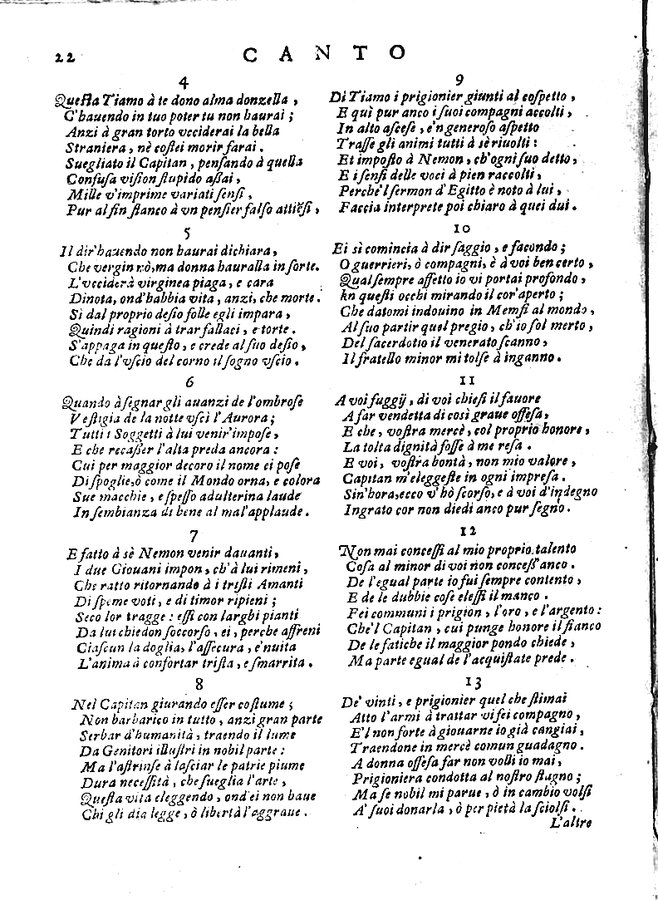 22
CANTO
4
Queſta Tiamo à te dono alma donzella,
C'hauendo in tuo poter tu non haurai;
Anzi à gran torto vcciderai la bella
Straniera, nè coſtei morir farai.
Suegliato il Capitan, penſando à quella
Confuſa viſion ſtupido aſſai,
Mille v'imprime variati ſenſi,
Pur al fin ſtanco à vn penſier falſo attieſi,
5
Il dir'hauendo non haurai dichiara,
Che vergin nò, ma donna hauralla in ſorte.
L'vcciderà virginea piaga, e cara
Dinota, ond'habbia vita, anzi, che morte.
Sì dal proprio deſio folle egli impara,
Quindi ragioni à trar fallaci, e torte.
S'appaga in queſto, e crede al ſuo deſio,
Che da l'vſcio del corno il ſogno vſcio.
6
Quando à ſegnar gli auanzi de l'ombroſe
Veſtigia de la notte vſcì l'Aurora;
Tutti i Soggetti à lui venir'impoſe,
E che recaſſer l'alta preda ancora:
Cui per maggior decoro il nome ei poſe
Di ſpoglie, ò come il Mondo orna, e colora
Sue macchie, e ſpeſſo adulterina laude
In ſembianza di bene al mal'applaude.
7
E fatto à sè Nemon venir dauanti,
I due Giouani impon, ch'à lui rimeni,
Che ratto ritornando à i triſti Amanti
Di ſpeme voti, e di timor ripieni;
Seco lor tragge: eſſi con larghi pianti
Da lui chiedon ſoccorſo, ei, perche affreni
Ciaſcun la doglia, l'aſſecura, e'nuita
L'anima à confortar triſta, e ſmarrita.
8
Nel Capitan giurando eſſer coſtume;
Non barbarico in tutto, anzi gran parte
Serbar d'humanità, traendo il lume
Da Genitori illuſtri in nobil parte:
Ma l'aſtrinſe à laſciar le patrie piume
Dura neceſſità, che ſueglia l'arte,
Queſta vita eleggendo, ond'ei non haue
Chi gli dia legge, ò libertà l'aggraue.
9
Di Tiamo i prigionier giunti al coſpetto,
E qui pur anco i ſuoi compagni accolti,
In alto aſceſe, e'n generoſo aſpetto
Traſſe gli animi tutti à sè riuolti:
Et impoſto à Nemon, ch'ogni ſuo detto,
E i ſenſi delle voci à pien raccolti,
Perche'l ſermon d'Egitto è noto à lui,
Faccia interprete poi chiaro à quei dui.
10
Ei sì comincia à dir ſaggio, e facondo;
O guerrieri, ò compagni, è à voi ben certo,
Qual ſempre affetto io vi portai profondo,
In queſti occhi mirando il cor'aperto;
Che datomi indouino in Memfi al mondo,
Al ſuo partir quel pregio, ch'io ſol merto,
Del ſacerdotio il venerato ſcanno,
Il fratello minor mi tolſe à inganno.
11
A voi fuggij, di voi chieſi il fauore
A far vendetta di così graue offeſa,
E che, voſtra mercè, col proprio honore,
La tolta dignità foſſe à me reſa.
E voi, voſtra bontà, non mio valore,
Capitan m'eleggeſte in ogni impreſa.
Sin'hora, ecco v'hò ſcorſo, e à voi d'indegno
Ingrato cor non diedi anco pur ſegno.
12
Non mai conceſſi al mio proprio talento
Coſa al minor di voi non conceſſ'anco.
De l'egual parte io fui ſempre contento,
E de le dubbie coſe eleſſi il manco.
Fei communi i prigion, l'oro, e l'argento:
Che'l Capitan, cui punge honore il fianco
De le fatiche il maggior pondo chiede,
Ma parte egual de l'acquiſtate prede.
13
De' vinti, e prigionier quel che ſtimai
Atto l'armi à trattar vi fei compagno,
E'l non forte à giouarne io già cangiai,
Traendone in mercè comun guadagno.
A donna offeſa far non volli io mai,
Prigioniera condotta al noſtro ſtagno;
Ma ſe nobil mi parue, ò in cambio volſi
A' ſuoi donarla, ò per pietà la ſciolſi.
L'altre